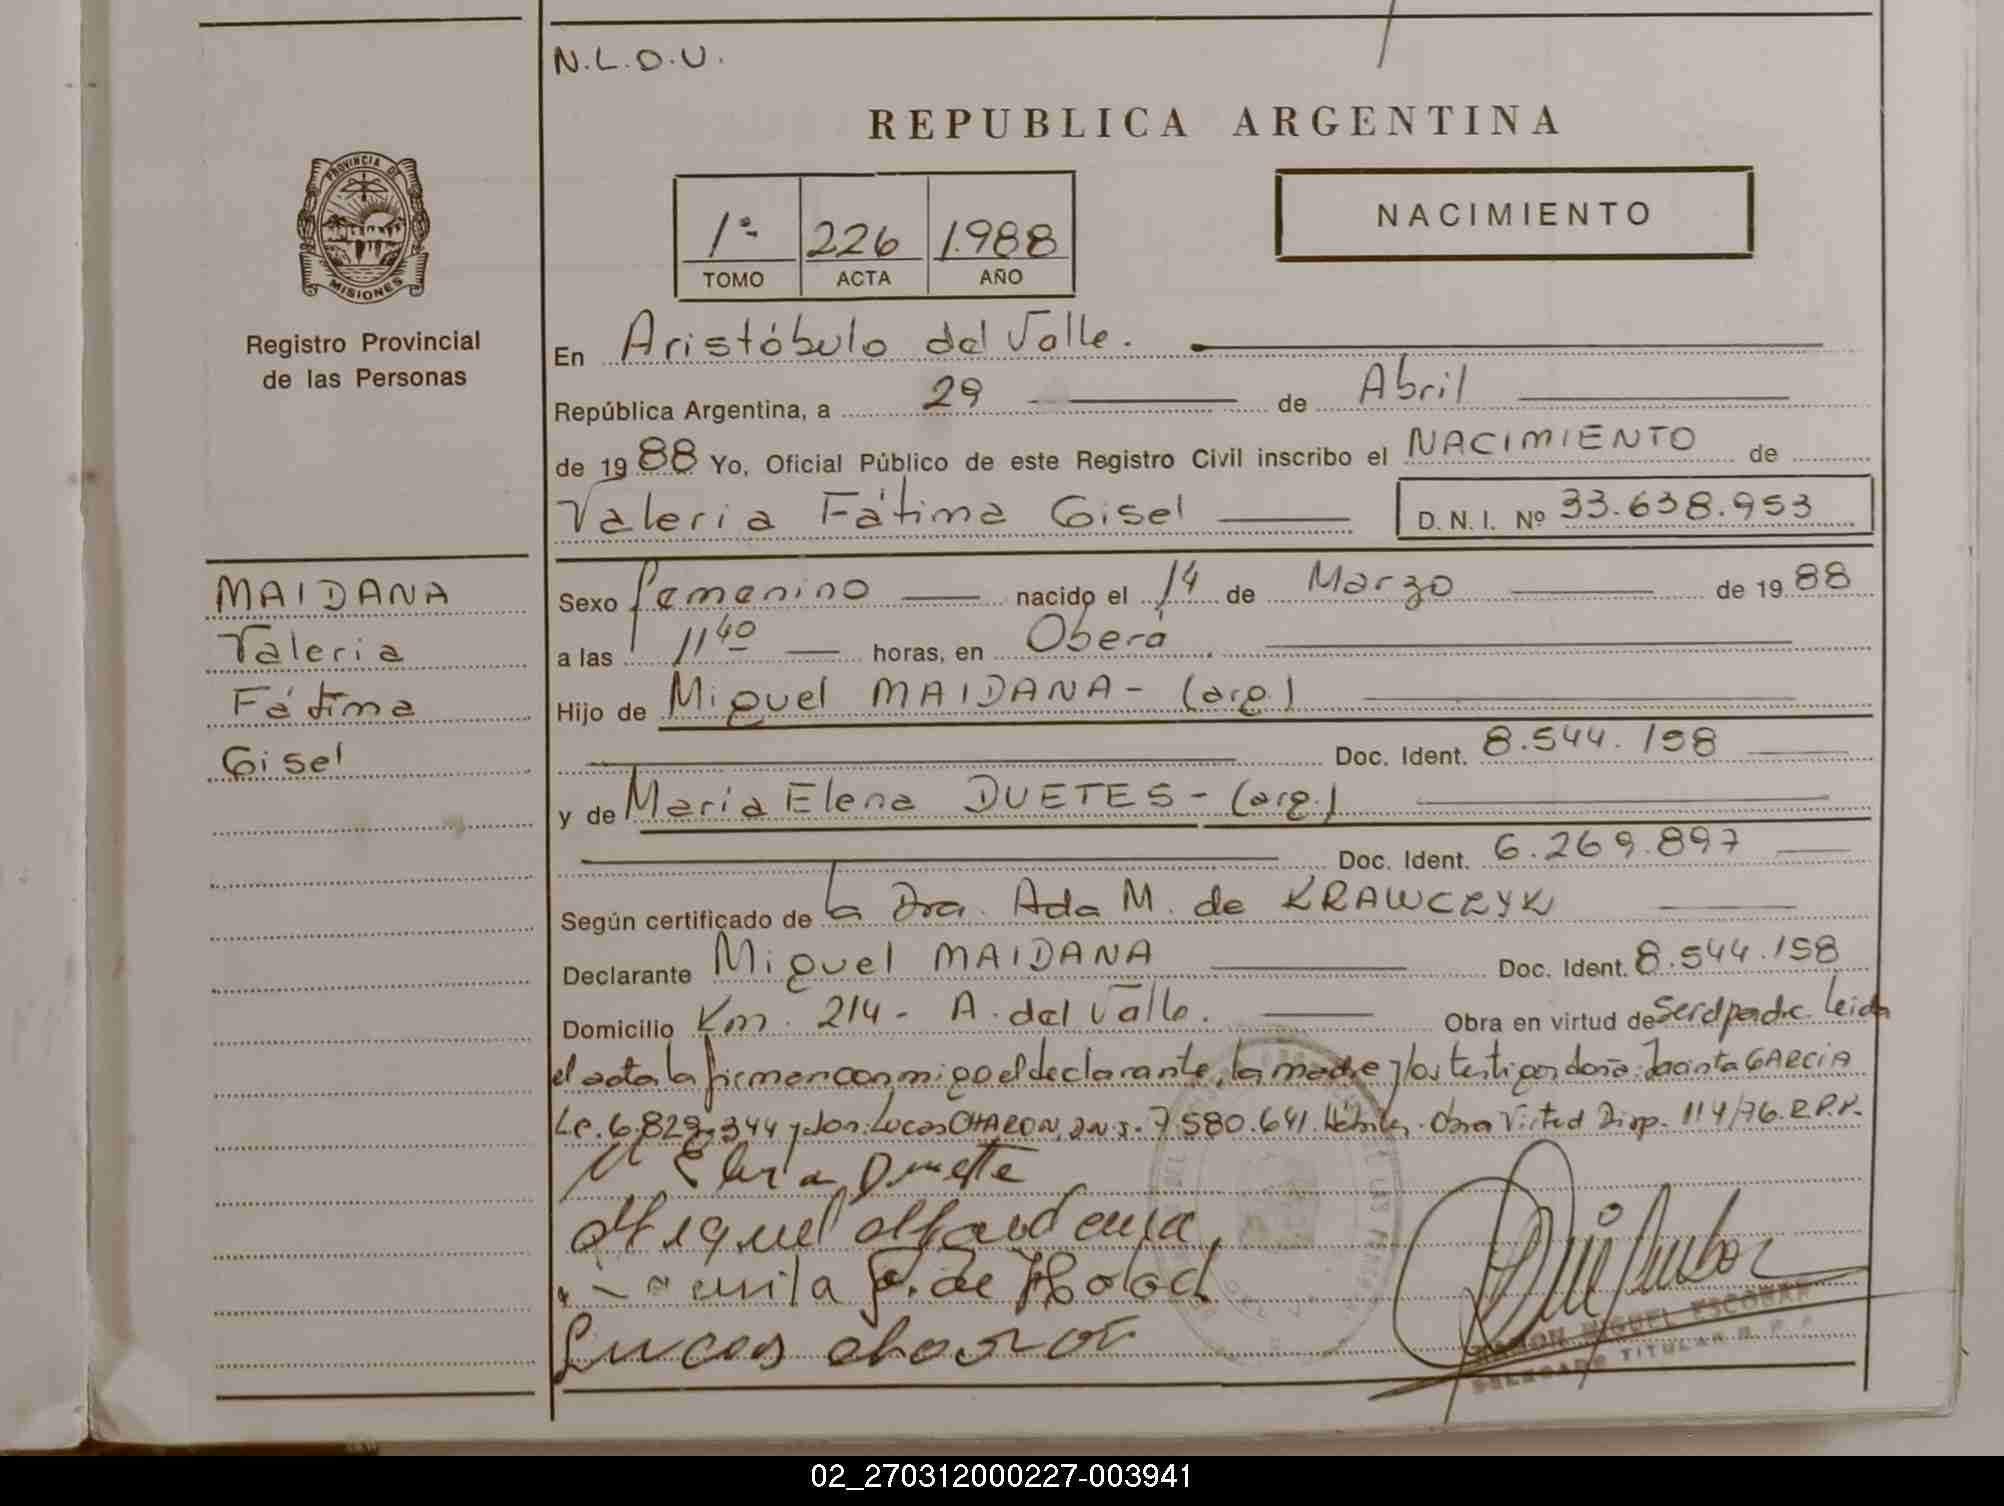 N.L.D.U.
REPUBLICA ARGENTINA
PROVINCIA DE
MISIONES
Registro Provincial
de las Personas
1º 226 1.988
TOMO ACTA AÑO
NACIMIENTO
En Aristóbulo del Valle.
República Argentina, a 29 de Abril
de 1988 Yo, Oficial Público de este Registro Civil inscribo el NACIMIENTO de
Valeria Fátima Gisel D.N.I. Nº 33.638.953
MAIDANA
Valeria
Fátima
Gisel
Sexo femenino nacido el 14 de Marzo de 1988
a las 11 40 horas, en Oberá
Hijo de Miguel MAIDANA - (arg.)
Doc. Ident. 8.544.158
y de Maria Elena DUETES - (arg.)
Doc. Ident. 6.269.897
Según certificado de la Dra. Ada M. de KRAWCZYK
Declarante Miguel MAIDANA Doc. Ident. 8.544.158
Domicilio Km. 214 - A. del Valle. Obra en virtud de ser el padre. Leida
el acta la firman conmigo el declarante, la madre y los testigos doña: Jacinta GARCIA
Lc. 6.829.344 y don: Lucas CHARON, 7.580.641. Obra Virtud Disp. 114/76. R.P.P.
M Elena Duette
Miguel Maidana
de Holod
Lucas
RAMON MIGUEL ESCOBAR
DELEGADO TITULAR R.P.P.
02_270312000227-003941